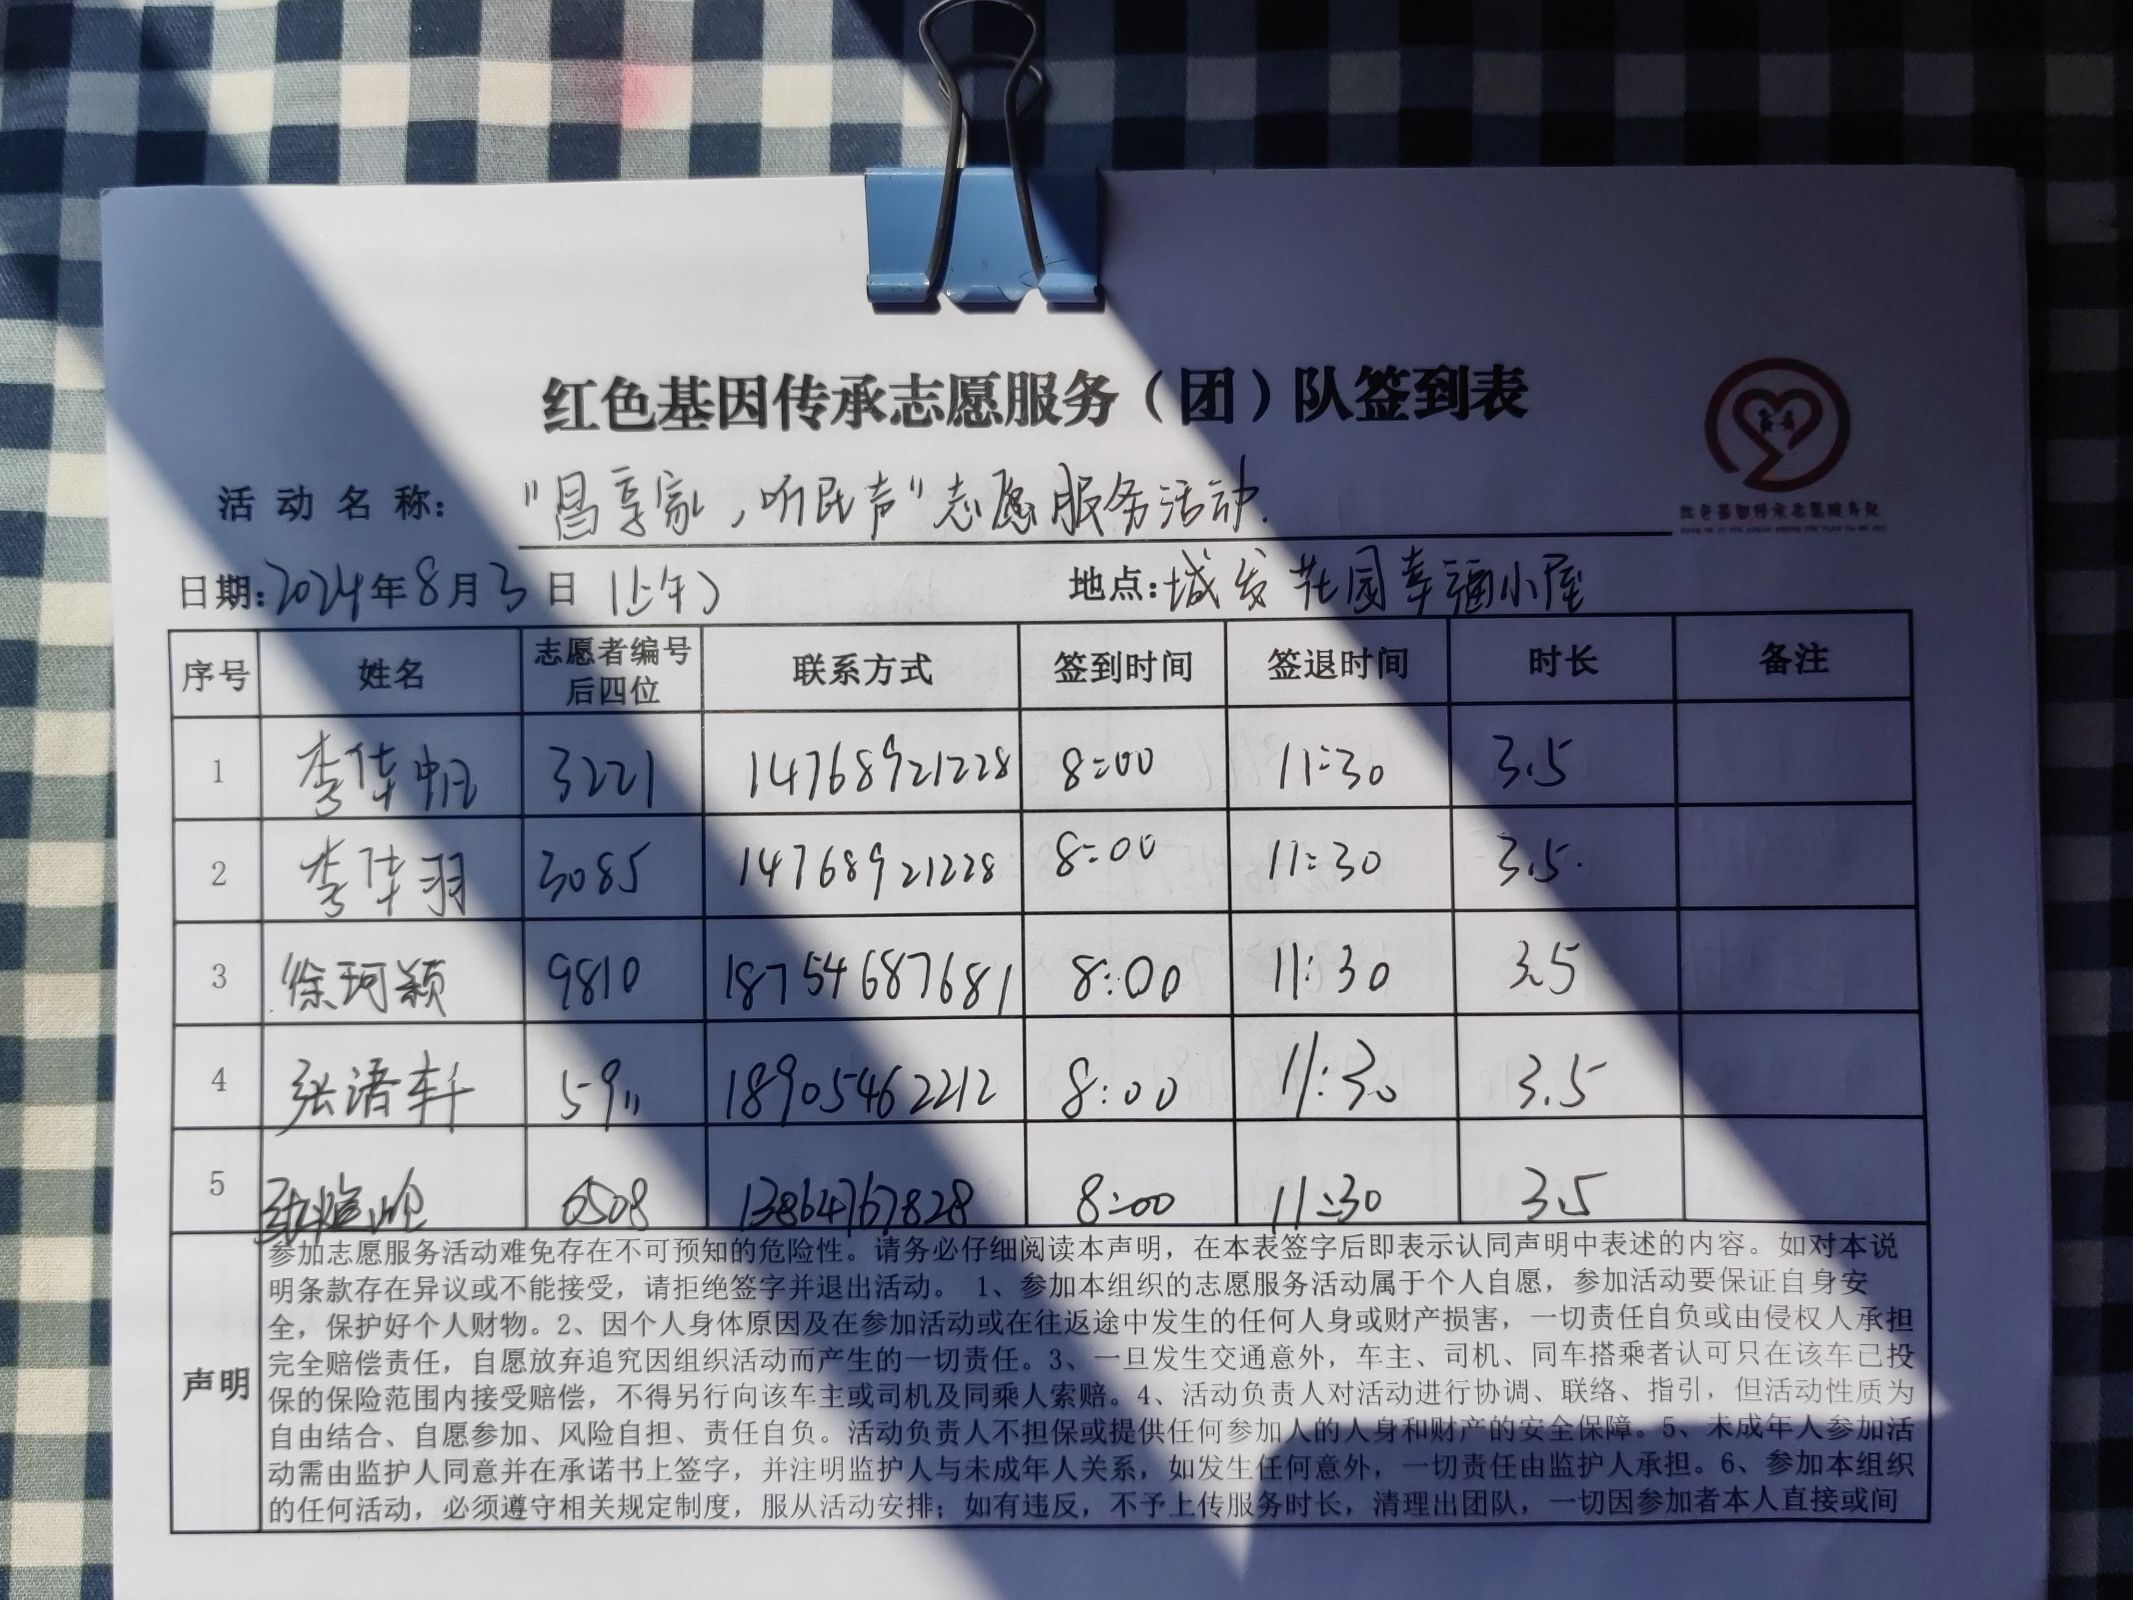 红色基因传承志愿服务（团）队签到表
红色基因传承志愿服务队
活动名称： "昌享家，听民声"志愿服务活动.
日期：2024年8月3日（上午） 地点：城发花园幸福小屋
序号 姓名 志愿者编号后四位 联系方式 签到时间 签退时间 时长 备注
1 李倖帆 3221 14768921228 8:00 11:30 3.5
2 李倖羽 3085 14768921228 8:00 11:30 3.5.
3 徐珂颖 9810 18754687681 8:00 11:30 3.5
4 张浯轩 5911 18905462212 8:00 11:30 3.5
5 0508 13864767828 8:00 11:30 3.5
声明
参加志愿服务活动难免存在不可预知的危险性。请务必仔细阅读本声明，在本表签字后即表示认同声明中表述的内容。如对本说
明条款存在异议或不能接受，请拒绝签字并退出活动。 1、参加本组织的志愿服务活动属于个人自愿，参加活动要保证自身安
全，保护好个人财物。2、因个人身体原因及在参加活动或在往返途中发生的任何人身或财产损害，一切责任自负或由侵权人承担
完全赔偿责任，自愿放弃追究因组织活动而产生的一切责任。3、一旦发生交通意外，车主、司机、同车搭乘者认可只在该车已投
保的保险范围内接受赔偿，不得另行向该车主或司机及同乘人索赔。4、活动负责人对活动进行协调、联络、指引，但活动性质为
自由结合、自愿参加、风险自担、责任自负。活动负责人不担保或提供任何参加人的人身和财产的安全保障。5、未成年人参加活
动需由监护人同意并在承诺书上签字，并注明监护人与未成年人关系，如发生任何意外，一切责任由监护人承担。6、参加本组织
的任何活动，必须遵守相关规定制度，服从活动安排；如有违反，不予上传服务时长，清理出团队，一切因参加者本人直接或间